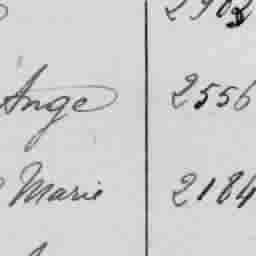 Ange 2556
Marie 2184